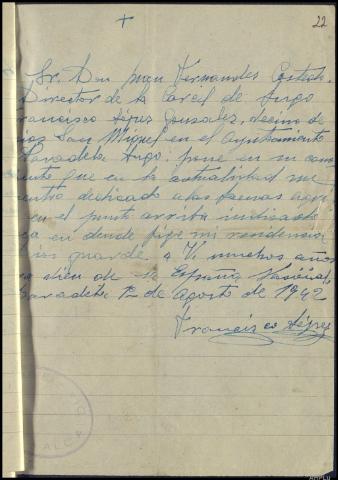 22
Sr. Don Juan Fernandez
Director de la Carcel de Lugo
rancisco López Gonzalez, vecino de
San Miguel en el Ayuntamiento
Paradela Lugo: pone en su cono
ento que en la actualidad me
entro dedicado a las faenas agri
en el punto arriba indicado
en donde fije mi residencia
ios guarde a V. muchos años
de España
aradela 12 de Agosto de 1942
Francisco López